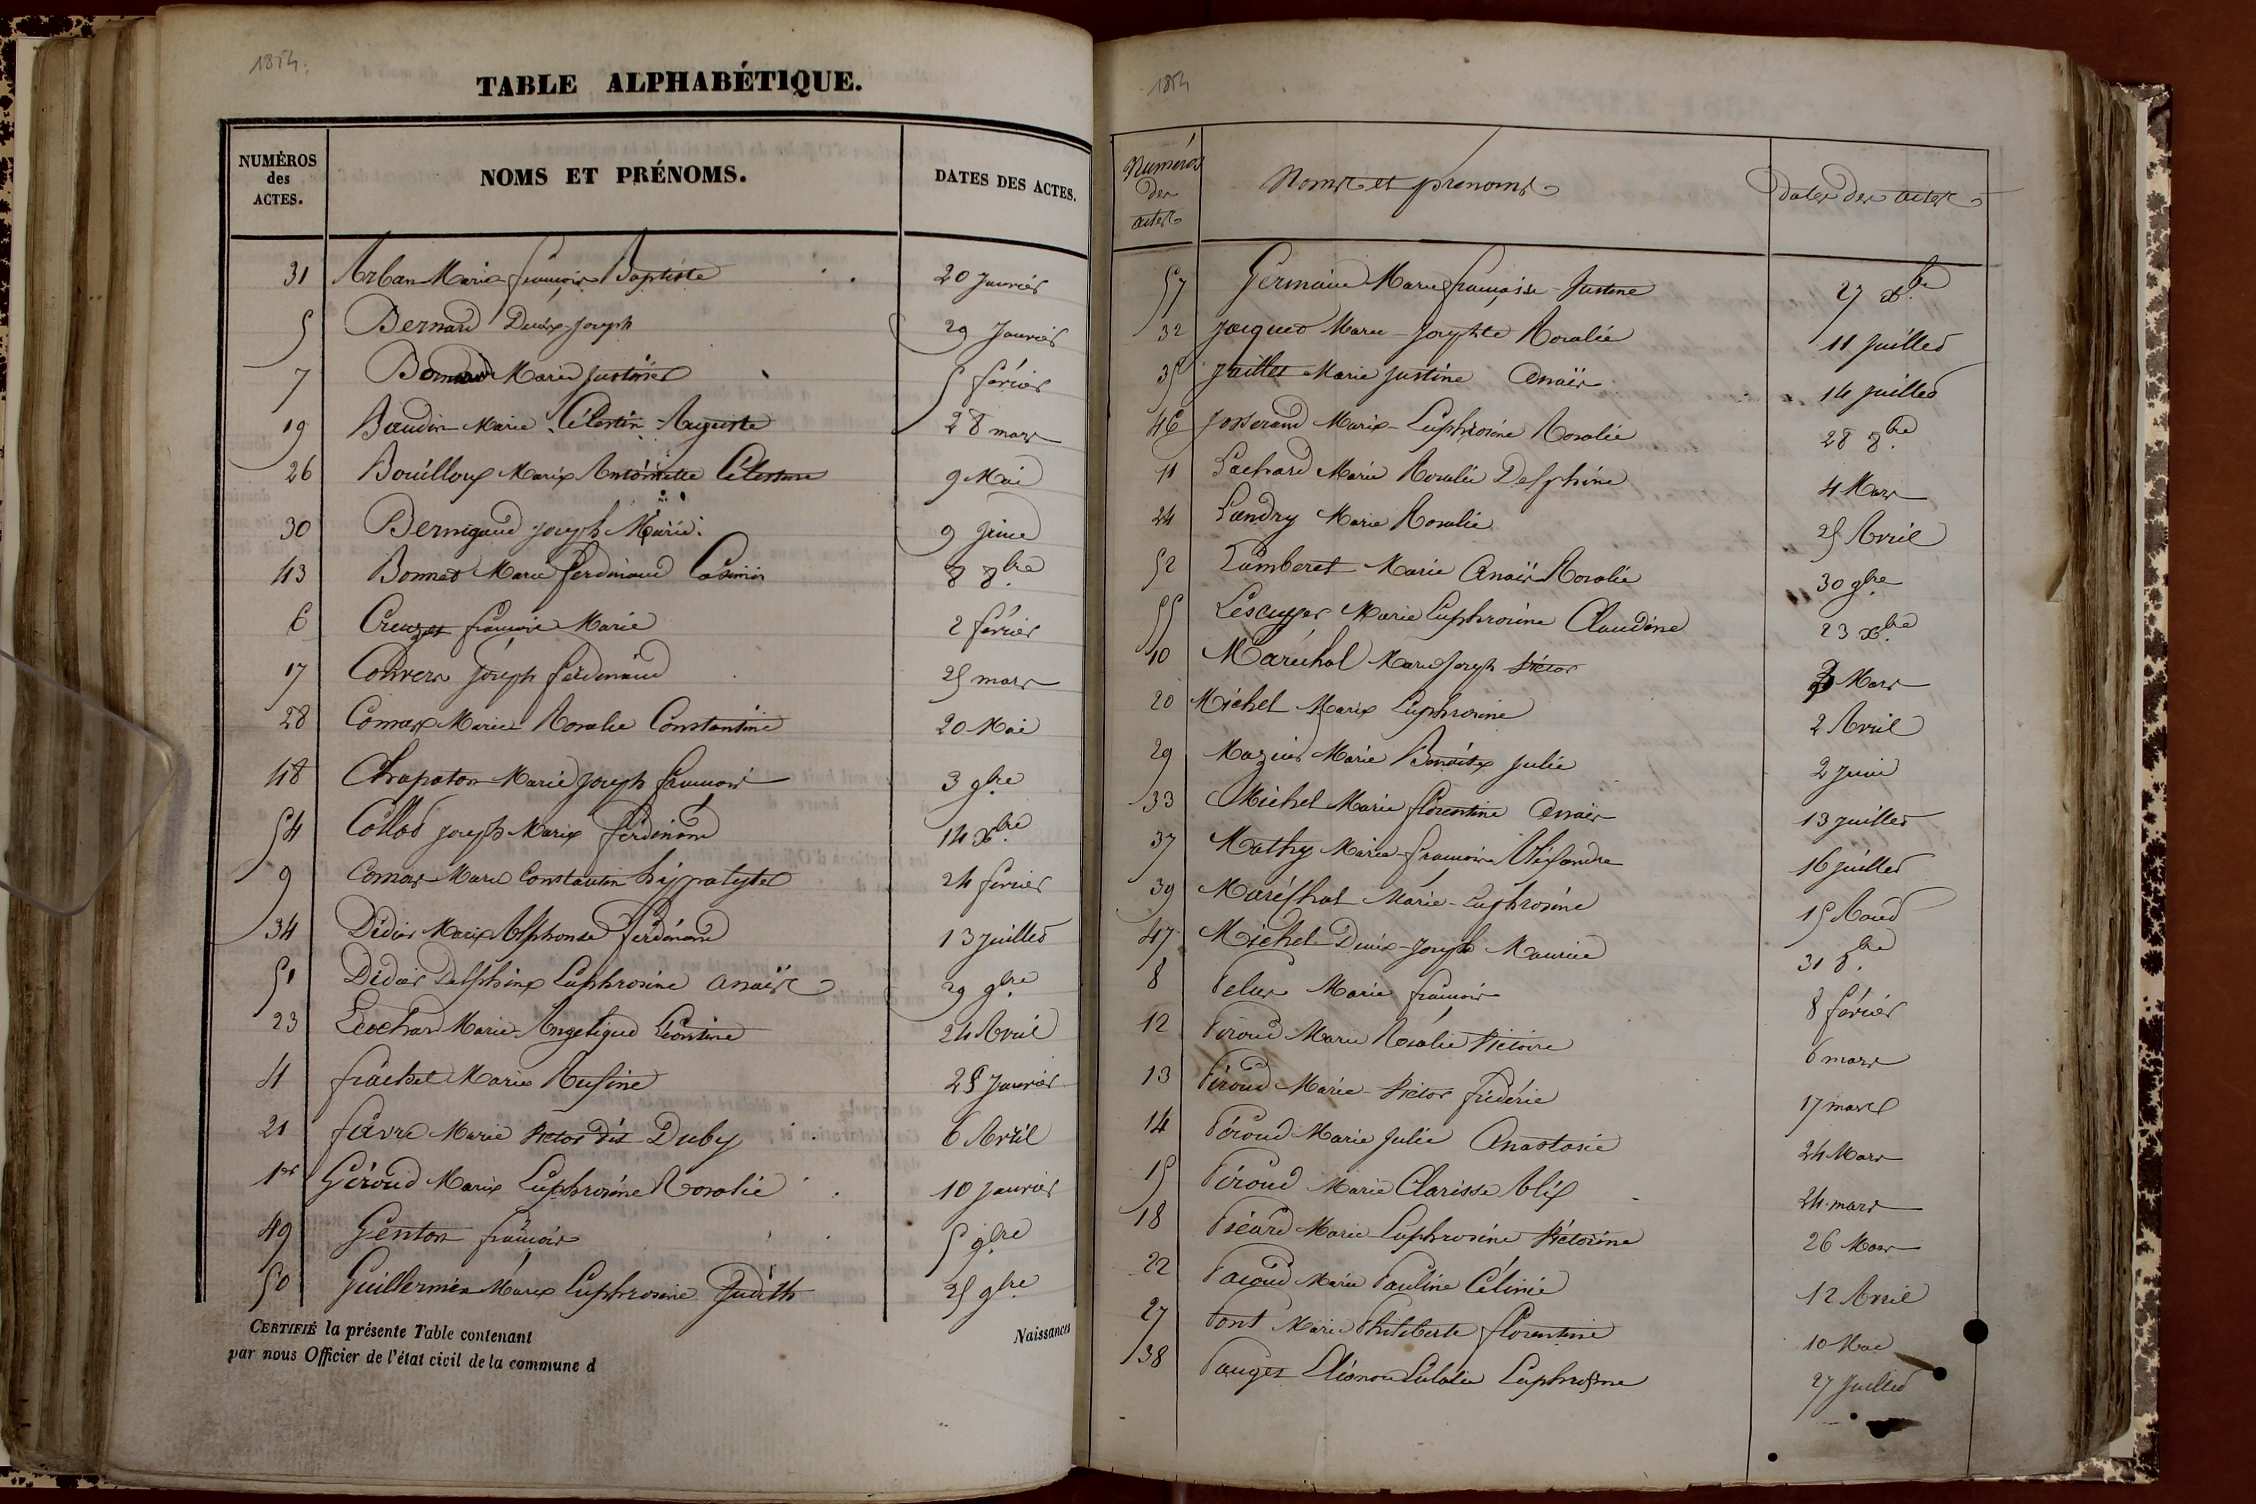 1854.
TABLE ALPHABÉTIQUE.
NUMÉROS des ACTES. NOMS ET PRÉNOMS. DATES DES ACTES.
31 Arban Marie françois Baptiste 20 Janvier
5 Bernard Denix Joseph 29 Janvier
7 Bernard Marie Justinien 5 février
19 Baudin Marie Célestin Auguste 28 mars
26 Bouilloux Marie Antoinette Célestine 9 Mai
30 Bernigaud joseph Marie 9 Juin
43 Bonnet Marie ferdinand Casimir 8 8.bre
6 Creuzet françois Marie 2 février
17 Convers Joseph ferdinand 25 mars
28 Comas Marie Rosalie Constantine 20 Mai
48 Chapaton Marie Joseph françois 3 9.bre
54 Collod joseph Marie ferdinand 14 X.bre
9 Comas Marie Constantin hippolyte 24 février
34 Didier Marie Alphonse ferdinand 13 juillet
51 Didier Delphine Euphrosine anaïs 29 9.bre
23 Marie Angelique Léontine 24 Avril
4 frachet Marie Rufine 25 Janvier
21 favre Marie Victor dit Duby 6 Avril
1er Géroud Marie Euphrosine Rosalie 10 janvier
49 Genton françois 5 9.bre
50 Guillermin Marie Euphrosine Judith 25 9.bre
CERTIFIÉ la présente Table contenant Naissances
par nous Officier de l'état civil de la commune d
1854
Numéros des actes Noms et prenoms dates des actes
57 Germain Marie françoise Justine 27 X.bre
32 Jacquet Marie Josephte Rosalie 11 Juillet
35 Jaillet Marie Justine Anaïs 14 Juillet
46 Josserand Marie Euphrosine Rosalie 28 8.bre
11 Lachard Marie Rosalie Delphine 4 Mars
24 Landry Marie Rosalie 25 Avril
52 Lamberet Marie Anaïs Rosalie 30 9.bre
55 Lescuyer Marie Euphrosine Claudine 23 X.bre
10 Maréchal Marie Joseph Victor Mars
20 Michel Marie Euphrosine 2 Avril
29 Mazuir Marie Benoite Julie 2 Juin
33 Michel Marie florentine Anaïs 13 juillet
37 Mathy Marie françois Alexandre 16 juillet
39 Maréchal Marie Euphrosine 15 Aout
47 Michel Denix Joseph Maurice 31 8.bre
8 Pelux Marie françois 8 février
12 Péroud Marie Rosalie Victoire 6 mars
13 Péroud Marie Victor fréderic 17 mars
14 Péroud Marie Julie Anastasie 24 Mars
15 Péroud Marie Clarisse Alix 24 mars
18 Picard Marie Euphrosine Victorine 26 Mars
22 Pacoud Marie Pauline Célinie 12 Avril
27 Pont Marie Philiberte florentine 10 Mai
38 Pauget Eléonore Eulalie Euphrosine 27 Juillet